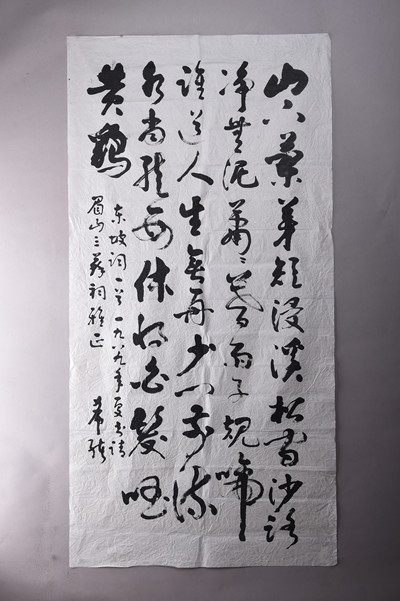 山下蘭芽短浸溪松間沙路
净無泥萧〻暮雨子規啼
谁道人生無再少门前流
水尚能西休将白髮唱
黄鷄
东坡词一首一九八九年夏书请
眉山三蘇祠雅正
希